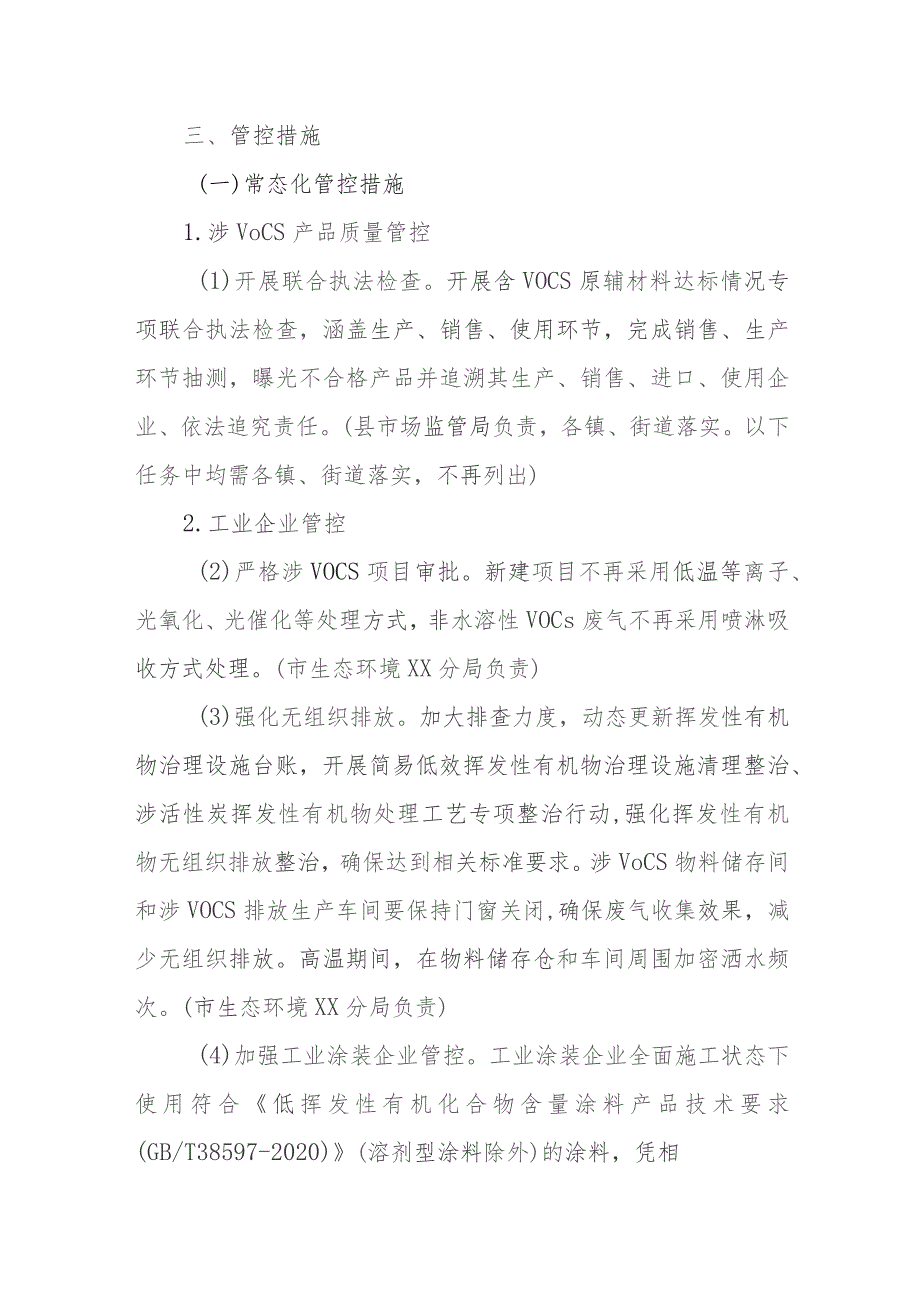 三、管控措施
(一)常态化管控措施
1.涉VoCS产品质量管控
(1)开展联合执法检查。开展含VOCS原辅材料达标情况专
项联合执法检查，涵盖生产、销售、使用环节，完成销售、生产
环节抽测，曝光不合格产品并追溯其生产、销售、进口、使用企
业、依法追究责任。(县市场监管局负责，各镇、街道落实。以下
任务中均需各镇、街道落实，不再列出)
2.工业企业管控
(2)严格涉VOCS项目审批。新建项目不再采用低温等离子、
光氧化、光催化等处理方式，非水溶性VOCs废气不再采用喷淋吸
收方式处理。(市生态环境XX分局负责)
(3)强化无组织排放。加大排查力度，动态更新挥发性有机
物治理设施台账，开展简易低效挥发性有机物治理设施清理整治、
涉活性炭挥发性有机物处理工艺专项整治行动,强化挥发性有机
物无组织排放整治，确保达到相关标准要求。涉VoCS物料储存间
和涉VOCS排放生产车间要保持门窗关闭,确保废气收集效果，减
少无组织排放。高温期间，在物料储存仓和车间周围加密洒水频
次。(市生态环境XX分局负责)
(4)加强工业涂装企业管控。工业涂装企业全面施工状态下
使用符合《低挥发性有机化合物含量涂料产品技术要求
(GB/T38597-2020)》(溶剂型涂料除外)的涂料，凭相